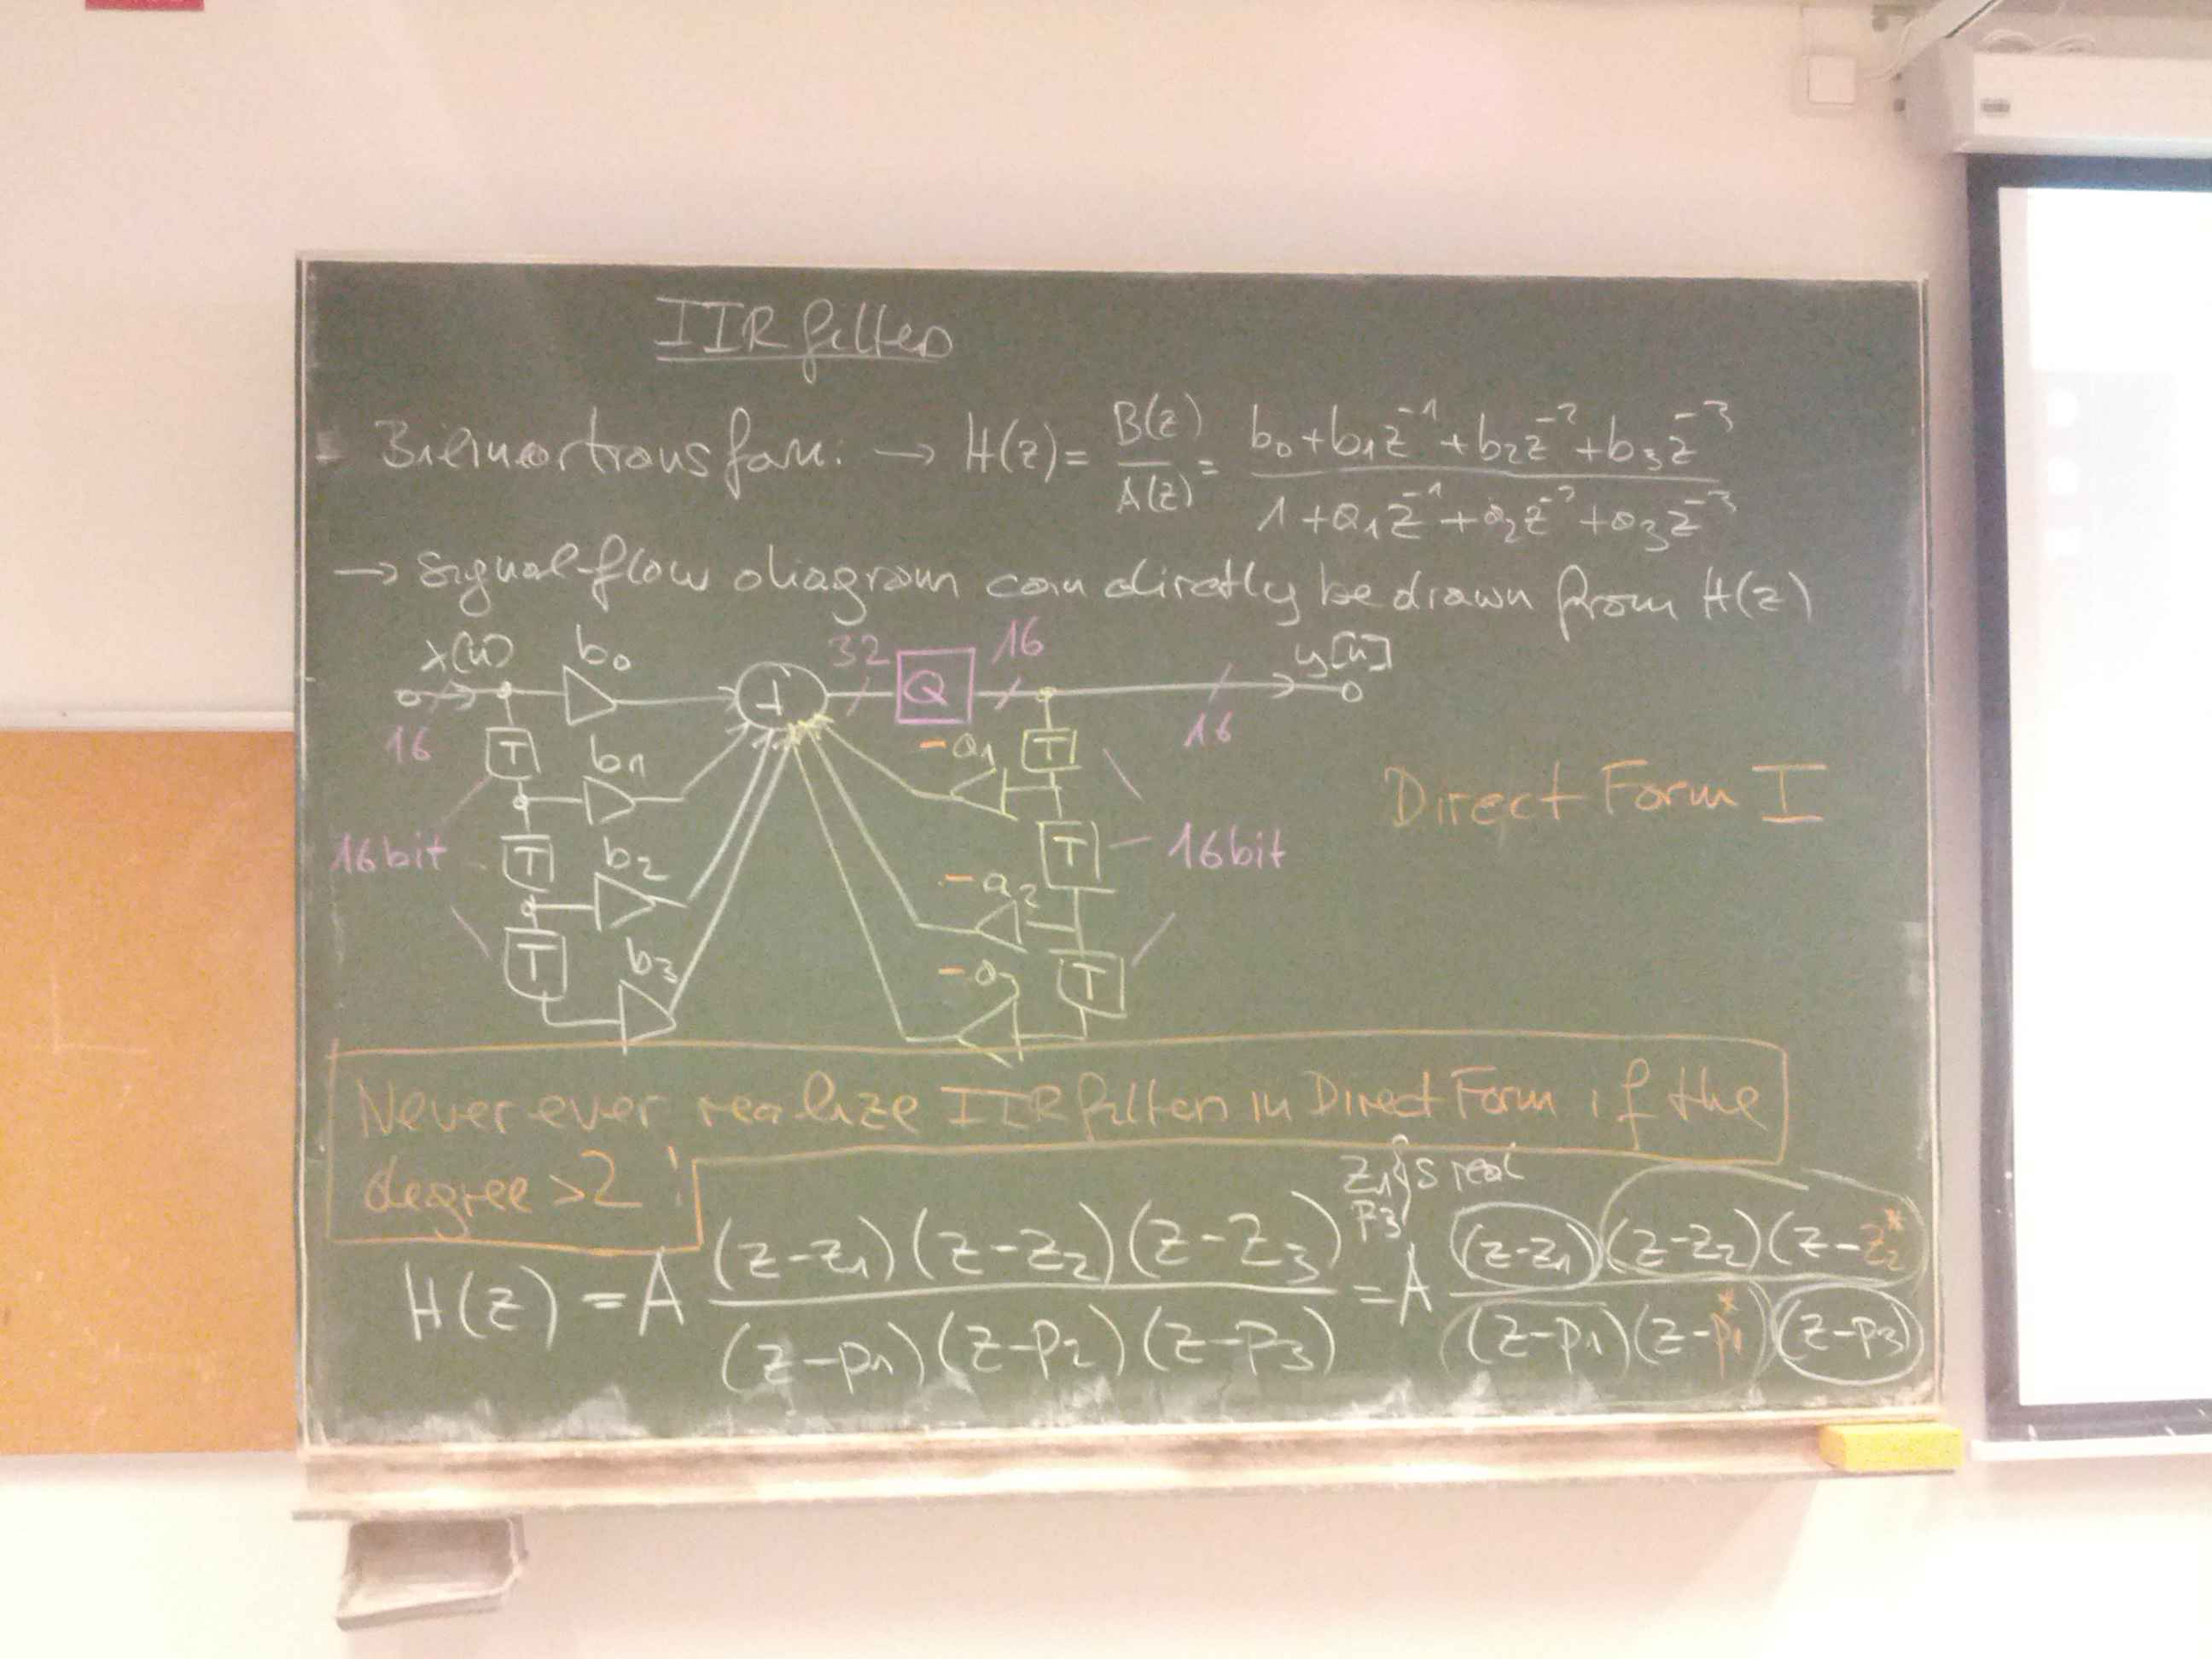 IIR filter
Bilineartransform: → H(z) = B(z)/A(z) = (b0+b1z^-1+b2z^-2+b3z^-3)/(1+a1z^-1+a2z^-2+a3z^-3)
→ signal-flow diagram can directly be drawn from H(z)
x[n] b0 + 32 Q 16 y[n]
16 16
T b1 -a1 T
Direct Form I
16bit T b2 -a2 T 16bit
T b3 -a3 T
Never ever realize IIR filter in Direct Form if the
degree >2 !
z1 is real
p3
H(z) = A (z-z1)(z-z2)(z-z3)/(z-p1)(z-p2)(z-p3) = A (z-z1)(z-z2)(z-z2*)/(z-p1)(z-p1*)(z-p3)